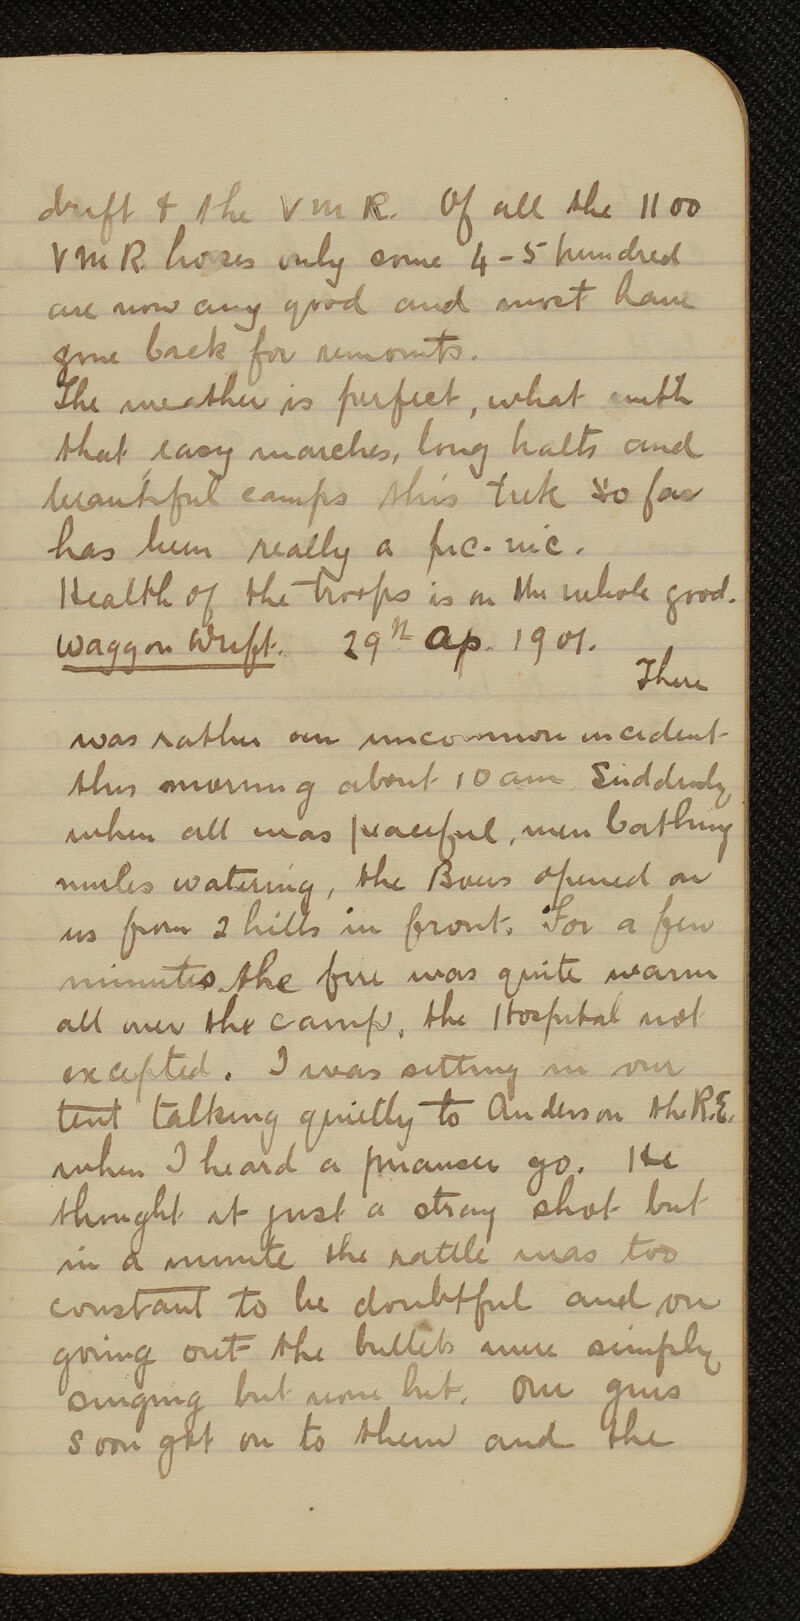 drift & the V M R. Of all the 1100
V M R. horses only some 4-5 hundred
are now any good and most have
gone back for remounts.
The weather is perfect, what with
that, easy marches, long halts and
beautiful camps this trek so far
has been really a pic-nic.
Health of the troops is on the whole good.
Waggon Drift. 29th Ap. 1901.
There
was rather an uncommon incident
this morning about 10 am Suddenly
when all was peaceful, men bathing
mules watering, the Boers opened on
us from 2 hills in front. For a few
minutes the fire was quite warm
all over the camp, the Hospital not
excepted. I was sitting in our
tent talking quietly to Anderson the R.E.
when I heard a mauser go. He
thought it just a stray shot but
in a minute the rattle was too
constant to be doubtful and on
going out the bullets were simply
singing but none hit. Our guns
soon got on to them and the